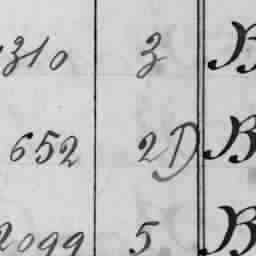 310 3 B
652 2D B
2099 5 B